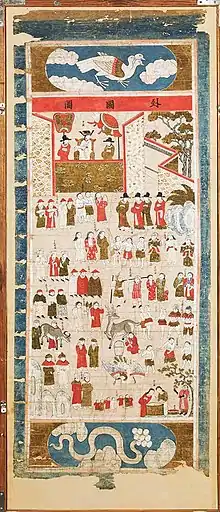 外國圖